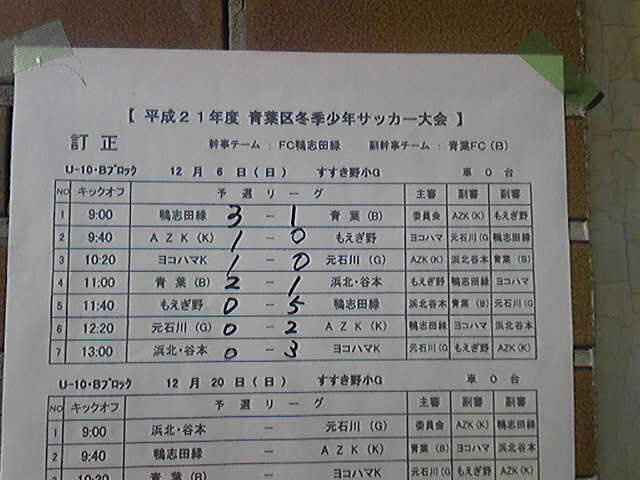 【 平成21年度 青葉区冬季少年サッカー大会 】
訂正 幹事チーム : FC鴨志田緑 副幹事チーム : 青葉FC(B)
U-10・Bブロック 12 月 6 日 (日) すすき野小G 車 0 台
NO キックオフ 予 選 リ ー グ 主審 副審 副審
1 9:00 鴨志田緑 3 - 1 青 葉 (B) 委員会 AZK(K) もえぎ野
2 9:40 A Z K (K) 1 - 0 もえぎ野 ヨコハマ 元石川(G 鴨志田緑
3 10:20 ヨコハマK 1 - 0 元石川 (G) AZK(K) 浜北谷本 青葉 (B)
4 11:00 青 葉 (B) 2 - 1 浜北・谷本 もえぎ野 鴨志田緑 ヨコハマ
5 11:40 もえぎ野 0 - 5 鴨志田緑 浜北谷本 青葉 (B) 元石川(G
6 12:20 元石川 (G) 0 - 2 A Z K (K) 鴨志田緑 ヨコハマ 浜北谷本
7 13:00 浜北・谷本 0 - 3 ヨコハマK 元石川(G もえぎ野 AZK(K)
U-10・Bブロック 12 月 20 日 (日) すすき野小G 車 0 台
NO キックオフ 予 選 リ ー グ 主審 副審 副審
1 9:00 浜北・谷本 - 元石川 (G) 委員会 AZK(K) 鴨志田緑
2 9:40 鴨志田緑 - A Z K (K) 青葉 (B) ヨコハマ 浜北谷本
10:20 青 葉 (B) ヨコハマK 元石川(G もえぎ野 AZK(K)